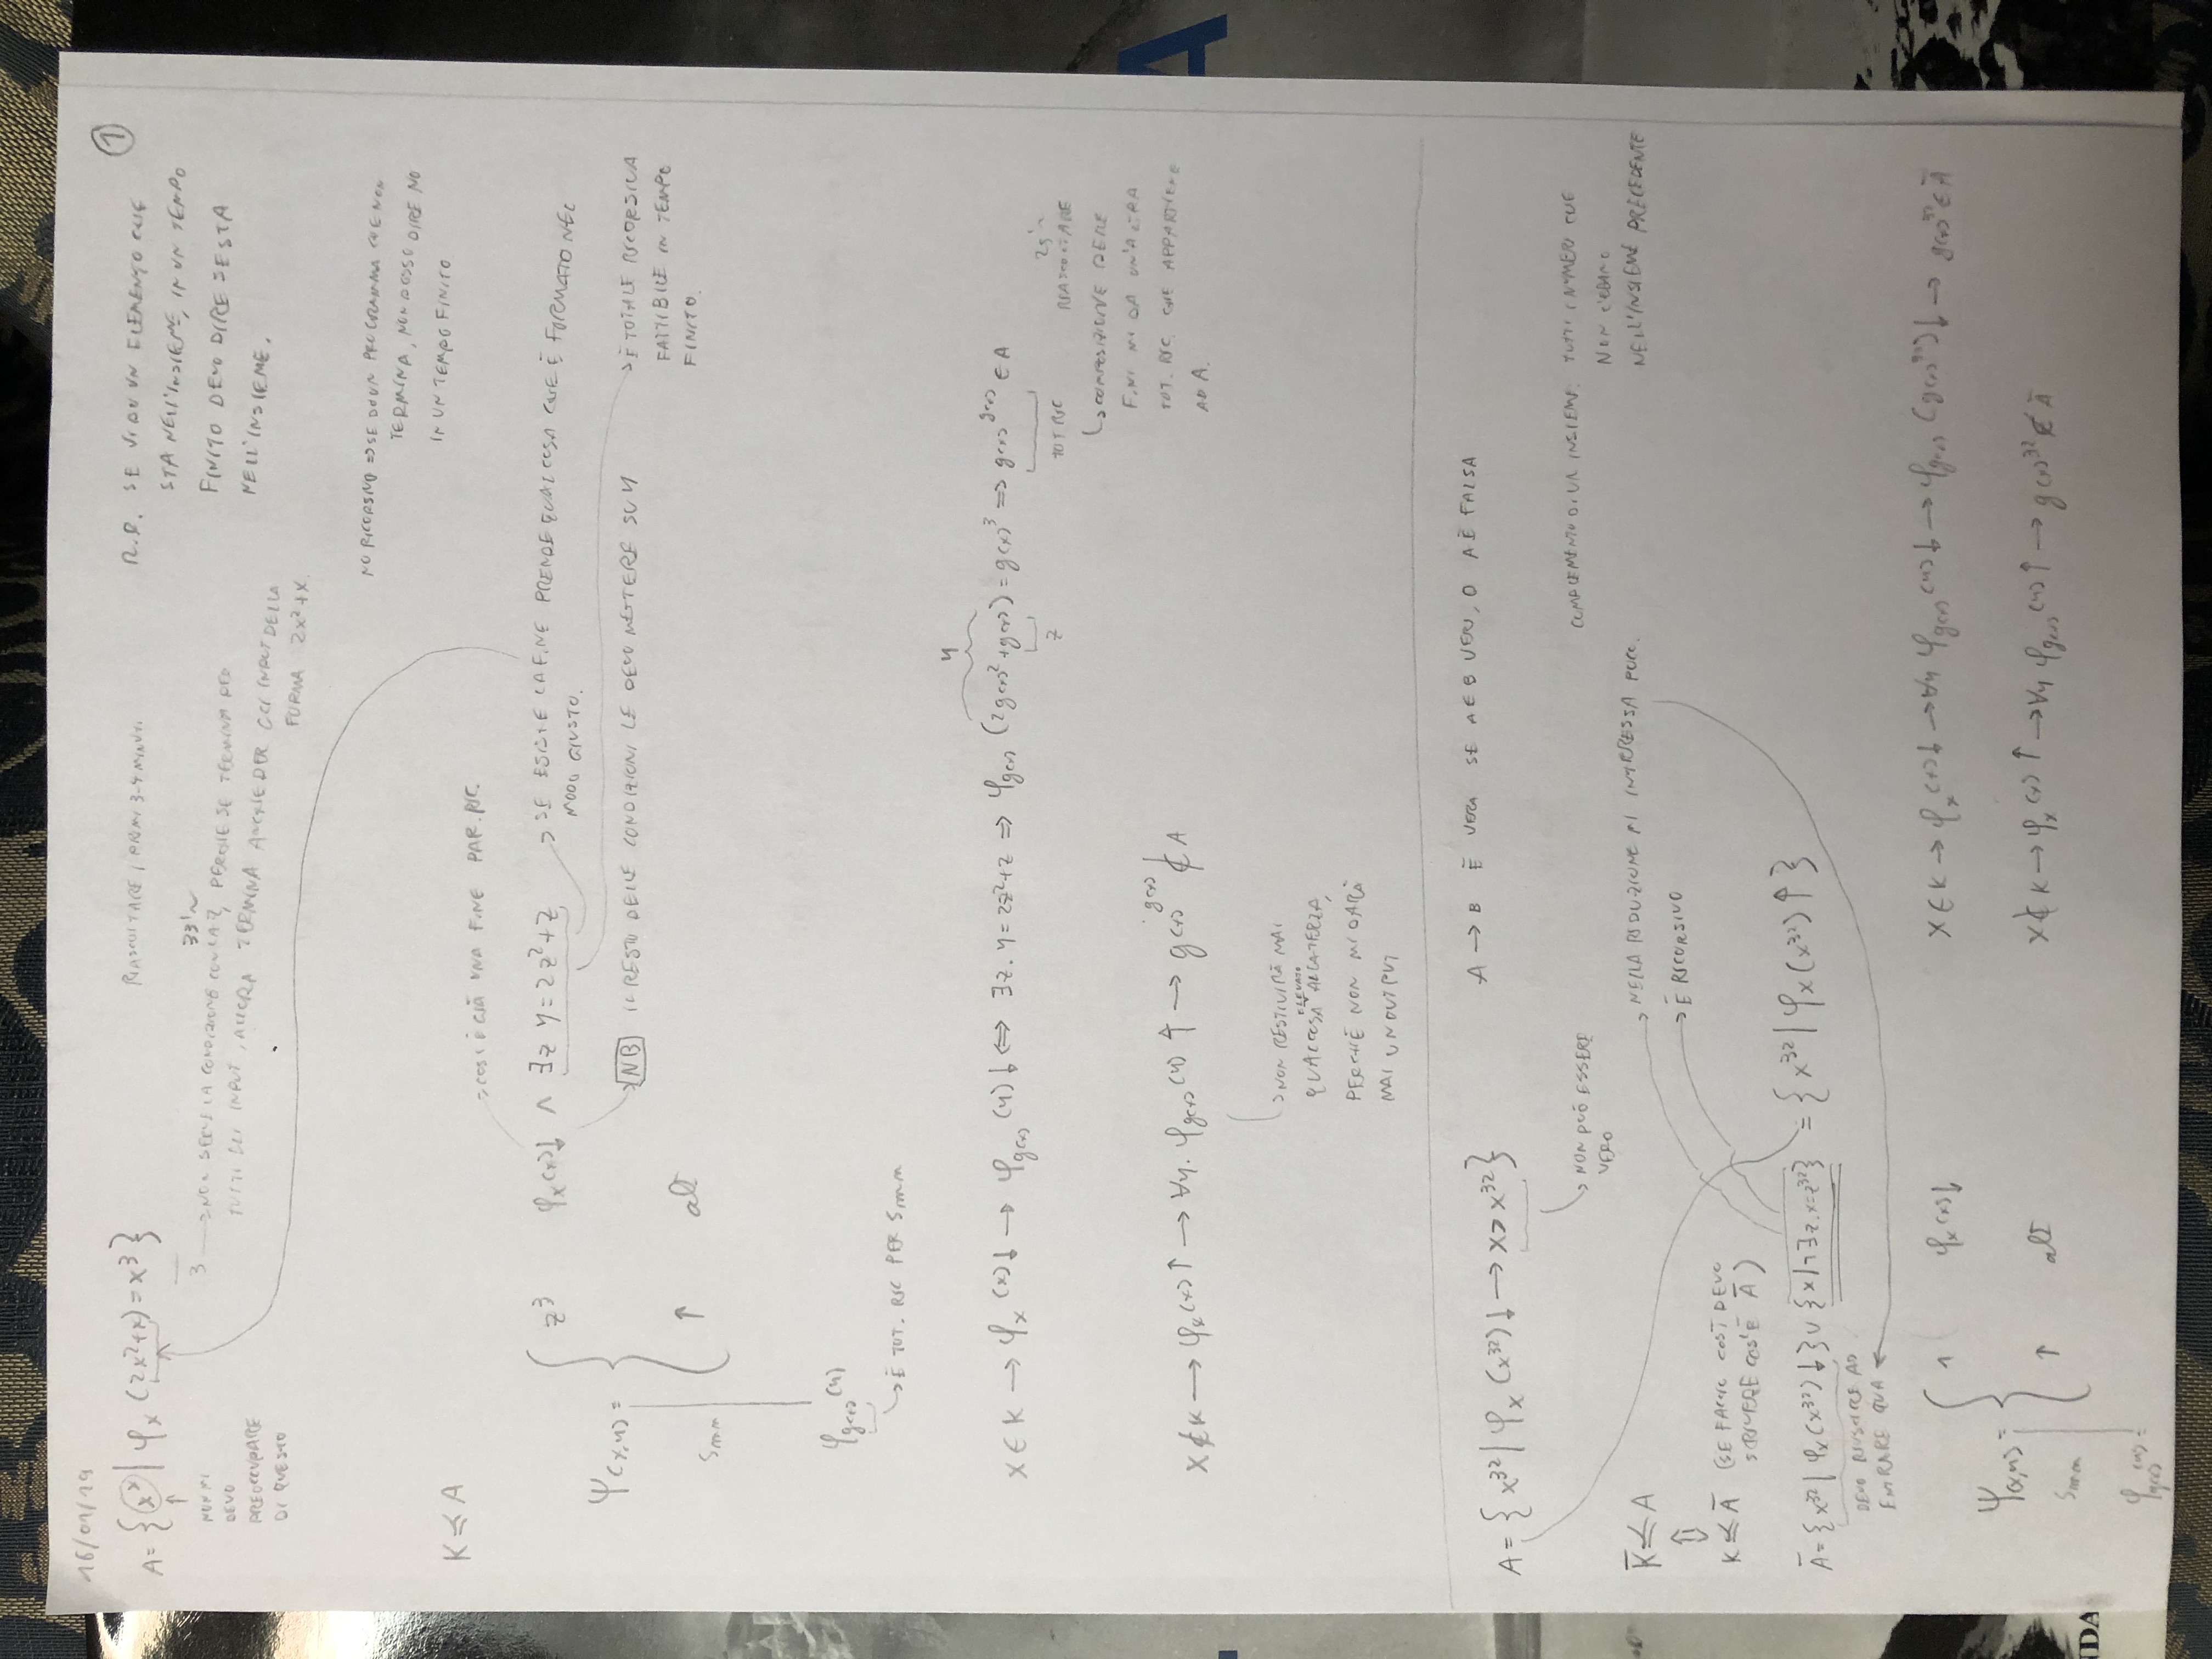 16/01/19
1
A = { x^x | φ_x (2x²+x) = x³ }
NON MI
DEVO
PREOCCUPARE
DI QUESTO
RIASCOLTARE I PRIMI 3-4 MINUTI
33'~
3 → NON SERVE LA CONDIZIONE CON LA Z, PERCHÉ SE TERMINA PER
TUTTI GLI INPUT, ALLORA TERMINA ANCHE PER GLI INPUT DELLA
FORMA 2x²+x.
R.E. SE VI DO UN ELEMENTO CHE
STA NELL'INSIEME, IN UN TEMPO
FINITO DEVO DIRE SE STA
NELL'INSIEME.
NO RICORSIVO => SE DO UN PROGRAMMA CHE NON
TERMINA, NON POSSO DIRE NO
IN UN TEMPO FINITO
K ≼ A
→ COSÌ È GIÀ UNA F.NE PAR. RIC.
ψ(x,y) = { z³ φ_x(x)↓ ∧ ∃z y = 2z²+z
→ SE ESISTE LA F.NE PRENDE QUALCOSA CHE È FORMATO NEL
MODO GIUSTO.
→ NB IL RESTO DELLE CONDIZIONI LE DEVO METTERE SU Y
→ È TOTALE RICORSIVA
FATTIBILE IN TEMPO
FINITO.
↑ alt
Smn
φ_g(x)(y)
→ È TOT. RIC PER Smn
y
x ∈ K → φ_x(x)↓ → φ_g(x)(y)↓ ⇔ ∃z. y = 2z²+z ⇒ φ_g(x)(2g(x)²+g(x)) = g(x)³ ⇒ g(x)^g(x) ∈ A
z
TOT RIC
RIASCOLTARE
→ COMPOSIZIONE DELLE
F.NI MI DA UN'ALTRA
TOT. RIC. CHE APPARTIENE
AD A.
x ∉ K → φ_x(x)↑ → ∀y. φ_g(x)(y)↑ → g(x)^g(x) ∉ A
→ NON RESTITUIRÀ MAI
QUALCOSA ELEVATO ALLA TERZA,
PERCHÉ NON MI DARÀ
MAI UN OUTPUT
A = { x³² | φ_x(x³²)↓ → x > x³² }
A → B È VERA SE A E B VERI, O A È FALSA
→ NON PUÒ ESSERE
VERO
COMPLEMENTO DI UN INSIEME: TUTTI I NUMERI CHE
NON C'ERANO
NELL'INSIEME PRECEDENTE
K̄ ≼ A
⇕
K ≼ Ā (SE FACCIO COSÌ DEVO
SCRIVERE COS'È Ā)
→ NELLA RIDUZIONE MI INTERESSA POCO.
→ È RICORSIVO
Ā = { x³² | φ_x(x³²)↓ } ∪ { x | ¬∃z. x=z³² } = { x³² | φ_x(x³²)↑ }
DEVO RIUSCIRE AD
ENTRARE QUA
ψ(x,y) = { 1 φ_x(x)↓
↑ alt
Smn
φ_g(x)(y) =
x ∈ K → φ_x(x)↓ → ∀y φ_g(x)(y)↓ → φ_g(x)(g(x)³²)↓ → g(x)³² ∈ Ā
x ∉ K → φ_x(x)↑ → ∀y φ_g(x)(y)↑ → g(x)³² ∉ Ā
NDA
A